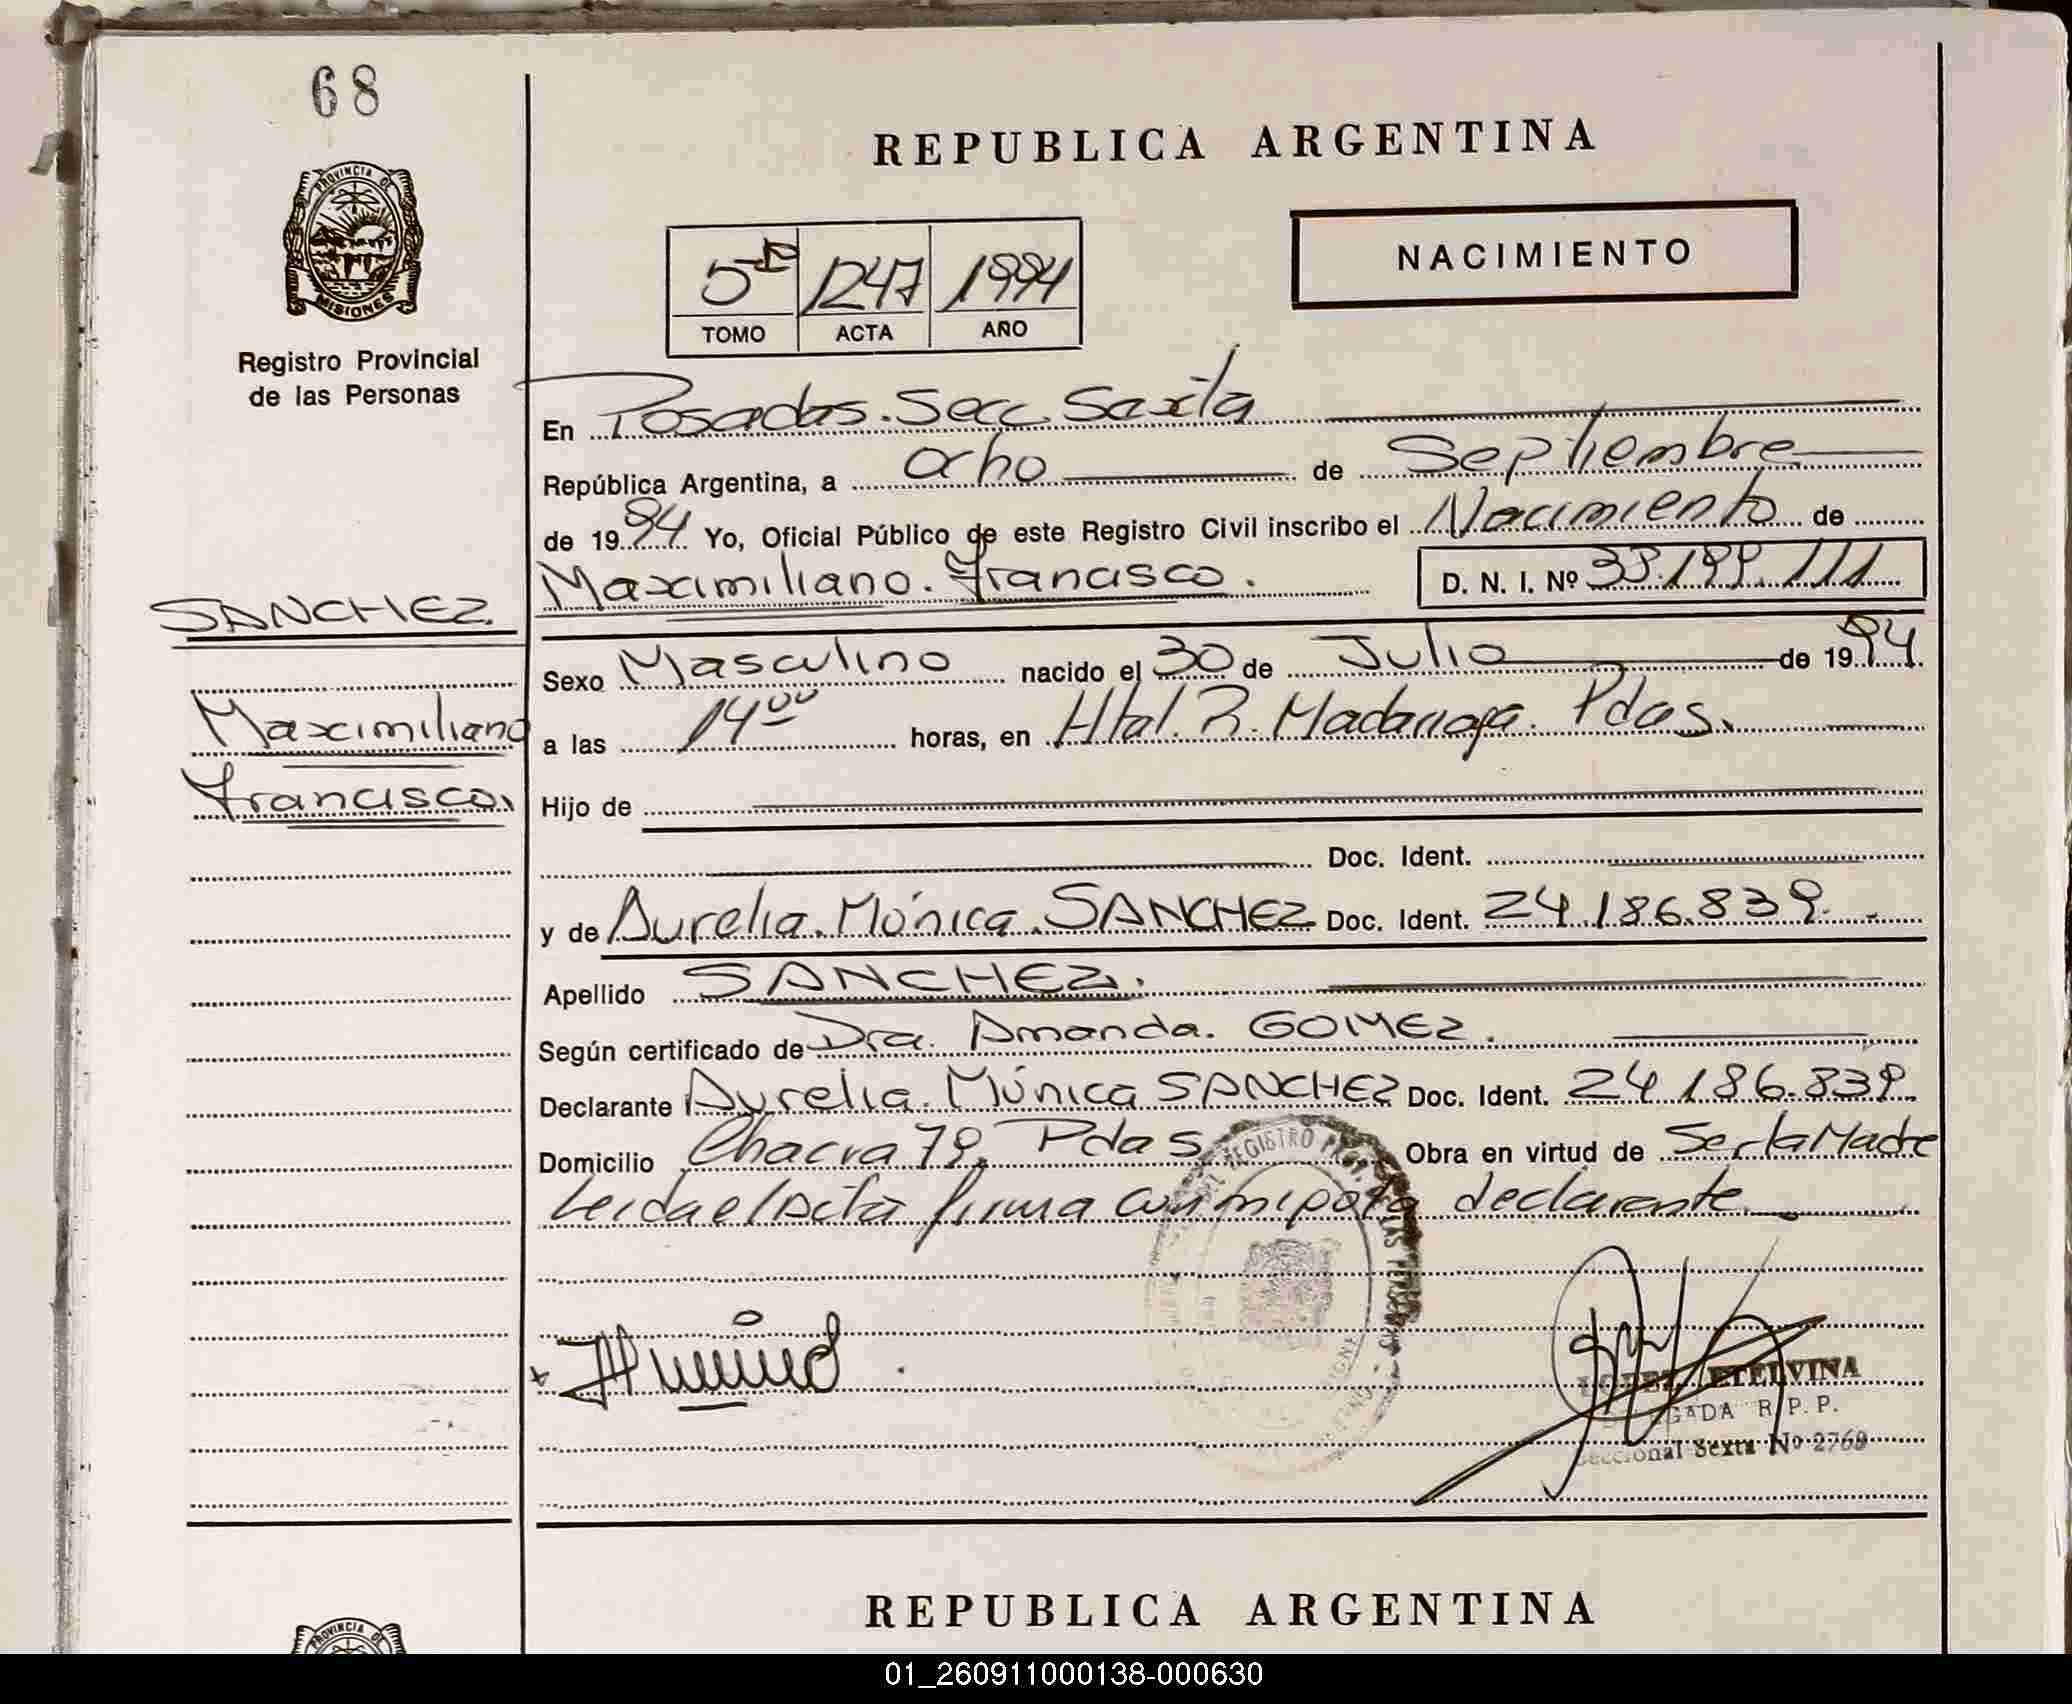 68
REPUBLICA ARGENTINA
PROVINCIA DE
MISIONES
Registro Provincial
de las Personas
5º 1247 1994
TOMO ACTA AÑO
NACIMIENTO
En Posadas. Secc. Sexta
República Argentina, a Ocho de Septiembre
de 1994 Yo, Oficial Público de este Registro Civil inscribo el Nacimiento de
Maximiliano. Francisco. D. N. I. Nº 33.199.111
SANCHEZ.
Sexo Masculino nacido el 30 de Julio de 1994
Maximiliano
a las 14⁰⁰ horas, en Htal. R. Madariaga. Pdas.
Francisco.
Hijo de
Doc. Ident.
y de Aurelia. Mónica. SANCHEZ Doc. Ident. 24.186.839.
Apellido SANCHEZ.
Según certificado de Dra. Amanda. GOMEZ.
Declarante Aurelia. Mónica SANCHEZ Doc. Ident. 24.186.839.
Domicilio Chacra 79, Pdas Obra en virtud de Ser la Madre
Leida el Acta firma conmigo la declarante
REGISTRO
LOPEZ ETELVINA
R. P. P.
Seccional Sexta Nº 2769
REPUBLICA ARGENTINA
PROVINCIA DE
01_260911000138-000630